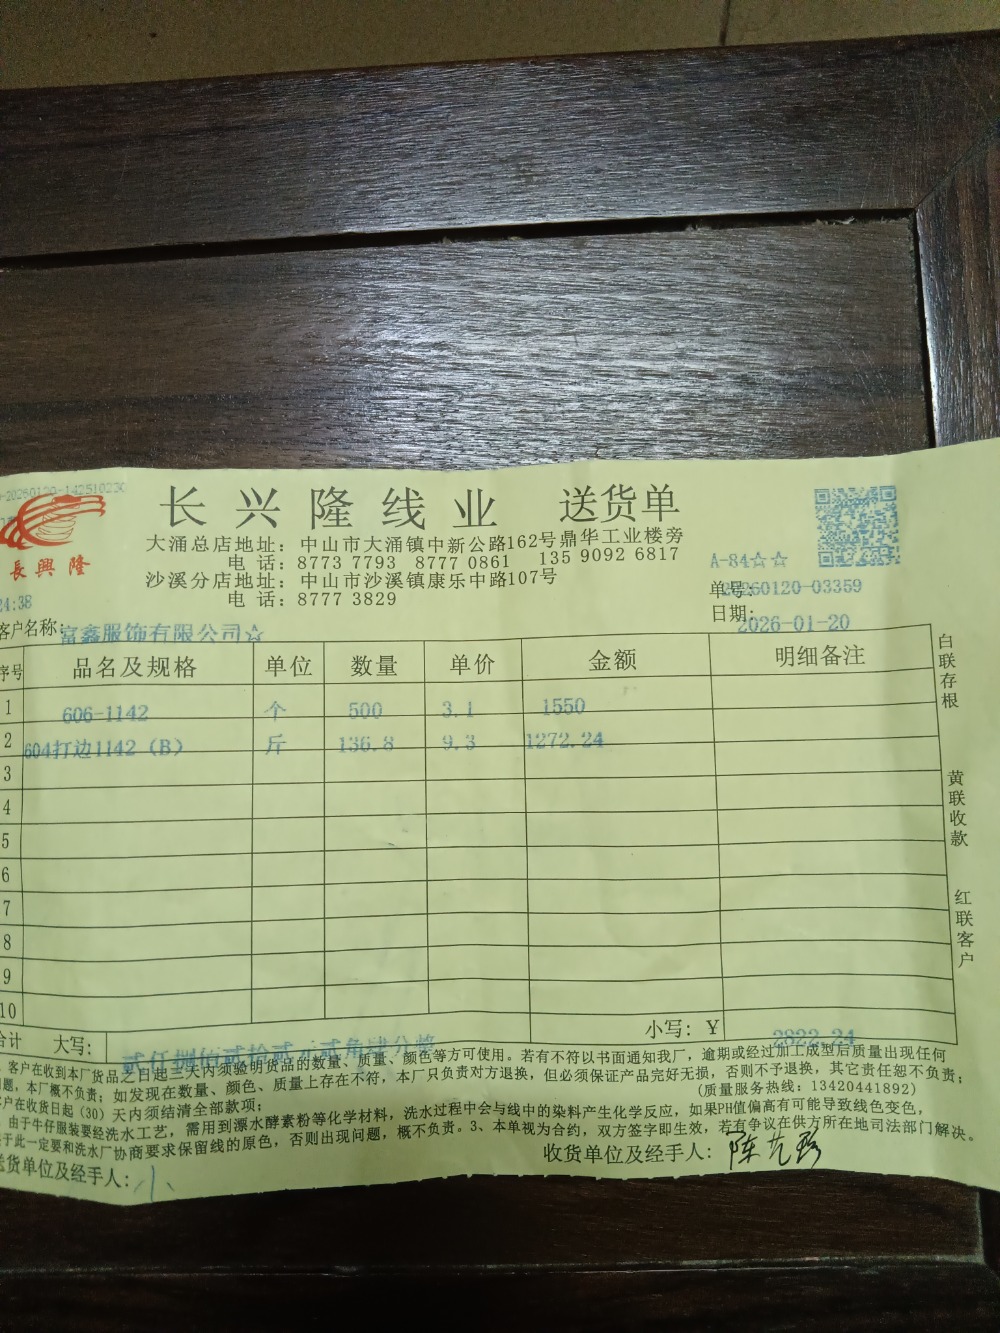 -20260120-142510230
长兴隆线业 送货单
長興隆
大涌总店地址：中山市大涌镇中新公路162号鼎华工业楼旁
电 话：8773 7793 8777 0861 135 9092 6817
沙溪分店地址：中山市沙溪镇康乐中路107号
电 话：8777 3829
A-84☆☆
24:38
单号：20260120-03359
日期：2026-01-20
客户名称：富鑫服饰有限公司☆
序号 品名及规格 单位 数量 单价 金额 明细备注
1 606-1142 个 500 3.1 1550
2 604打边1142（B） 斤 136.8 9.3 1272.24
3
4
5
6
7
8
9
10
合计 大写：贰仟捌佰贰拾贰元贰角肆分整 小写：￥2822.24
客户在收到本厂货品之日起三天内须验明货品的数量、质量、颜色等方可使用。若有不符以书面通知我厂，逾期或经过加工成型后质量出现任何
题，本厂概不负责；如发现在数量、颜色、质量上存在不符，本厂只负责对方退换，但必须保证产品完好无损，否则不予退换，其它责任恕不负责；
（质量服务热线：13420441892）
户在收货日起（30）天内须结清全部款项；
由于牛仔服装要经洗水工艺，需用到漂水酵素粉等化学材料，洗水过程中会与线中的染料产生化学反应，如果PH值偏高有可能导致线色变色，
于此一定要和洗水厂协商要求保留线的原色，否则出现问题，概不负责。3、本单视为合约，双方签字即生效，若有争议在供方所在地司法部门解决。
送货单位及经手人：
收货单位及经手人：陈
白联存根
黄联收款
红联客户